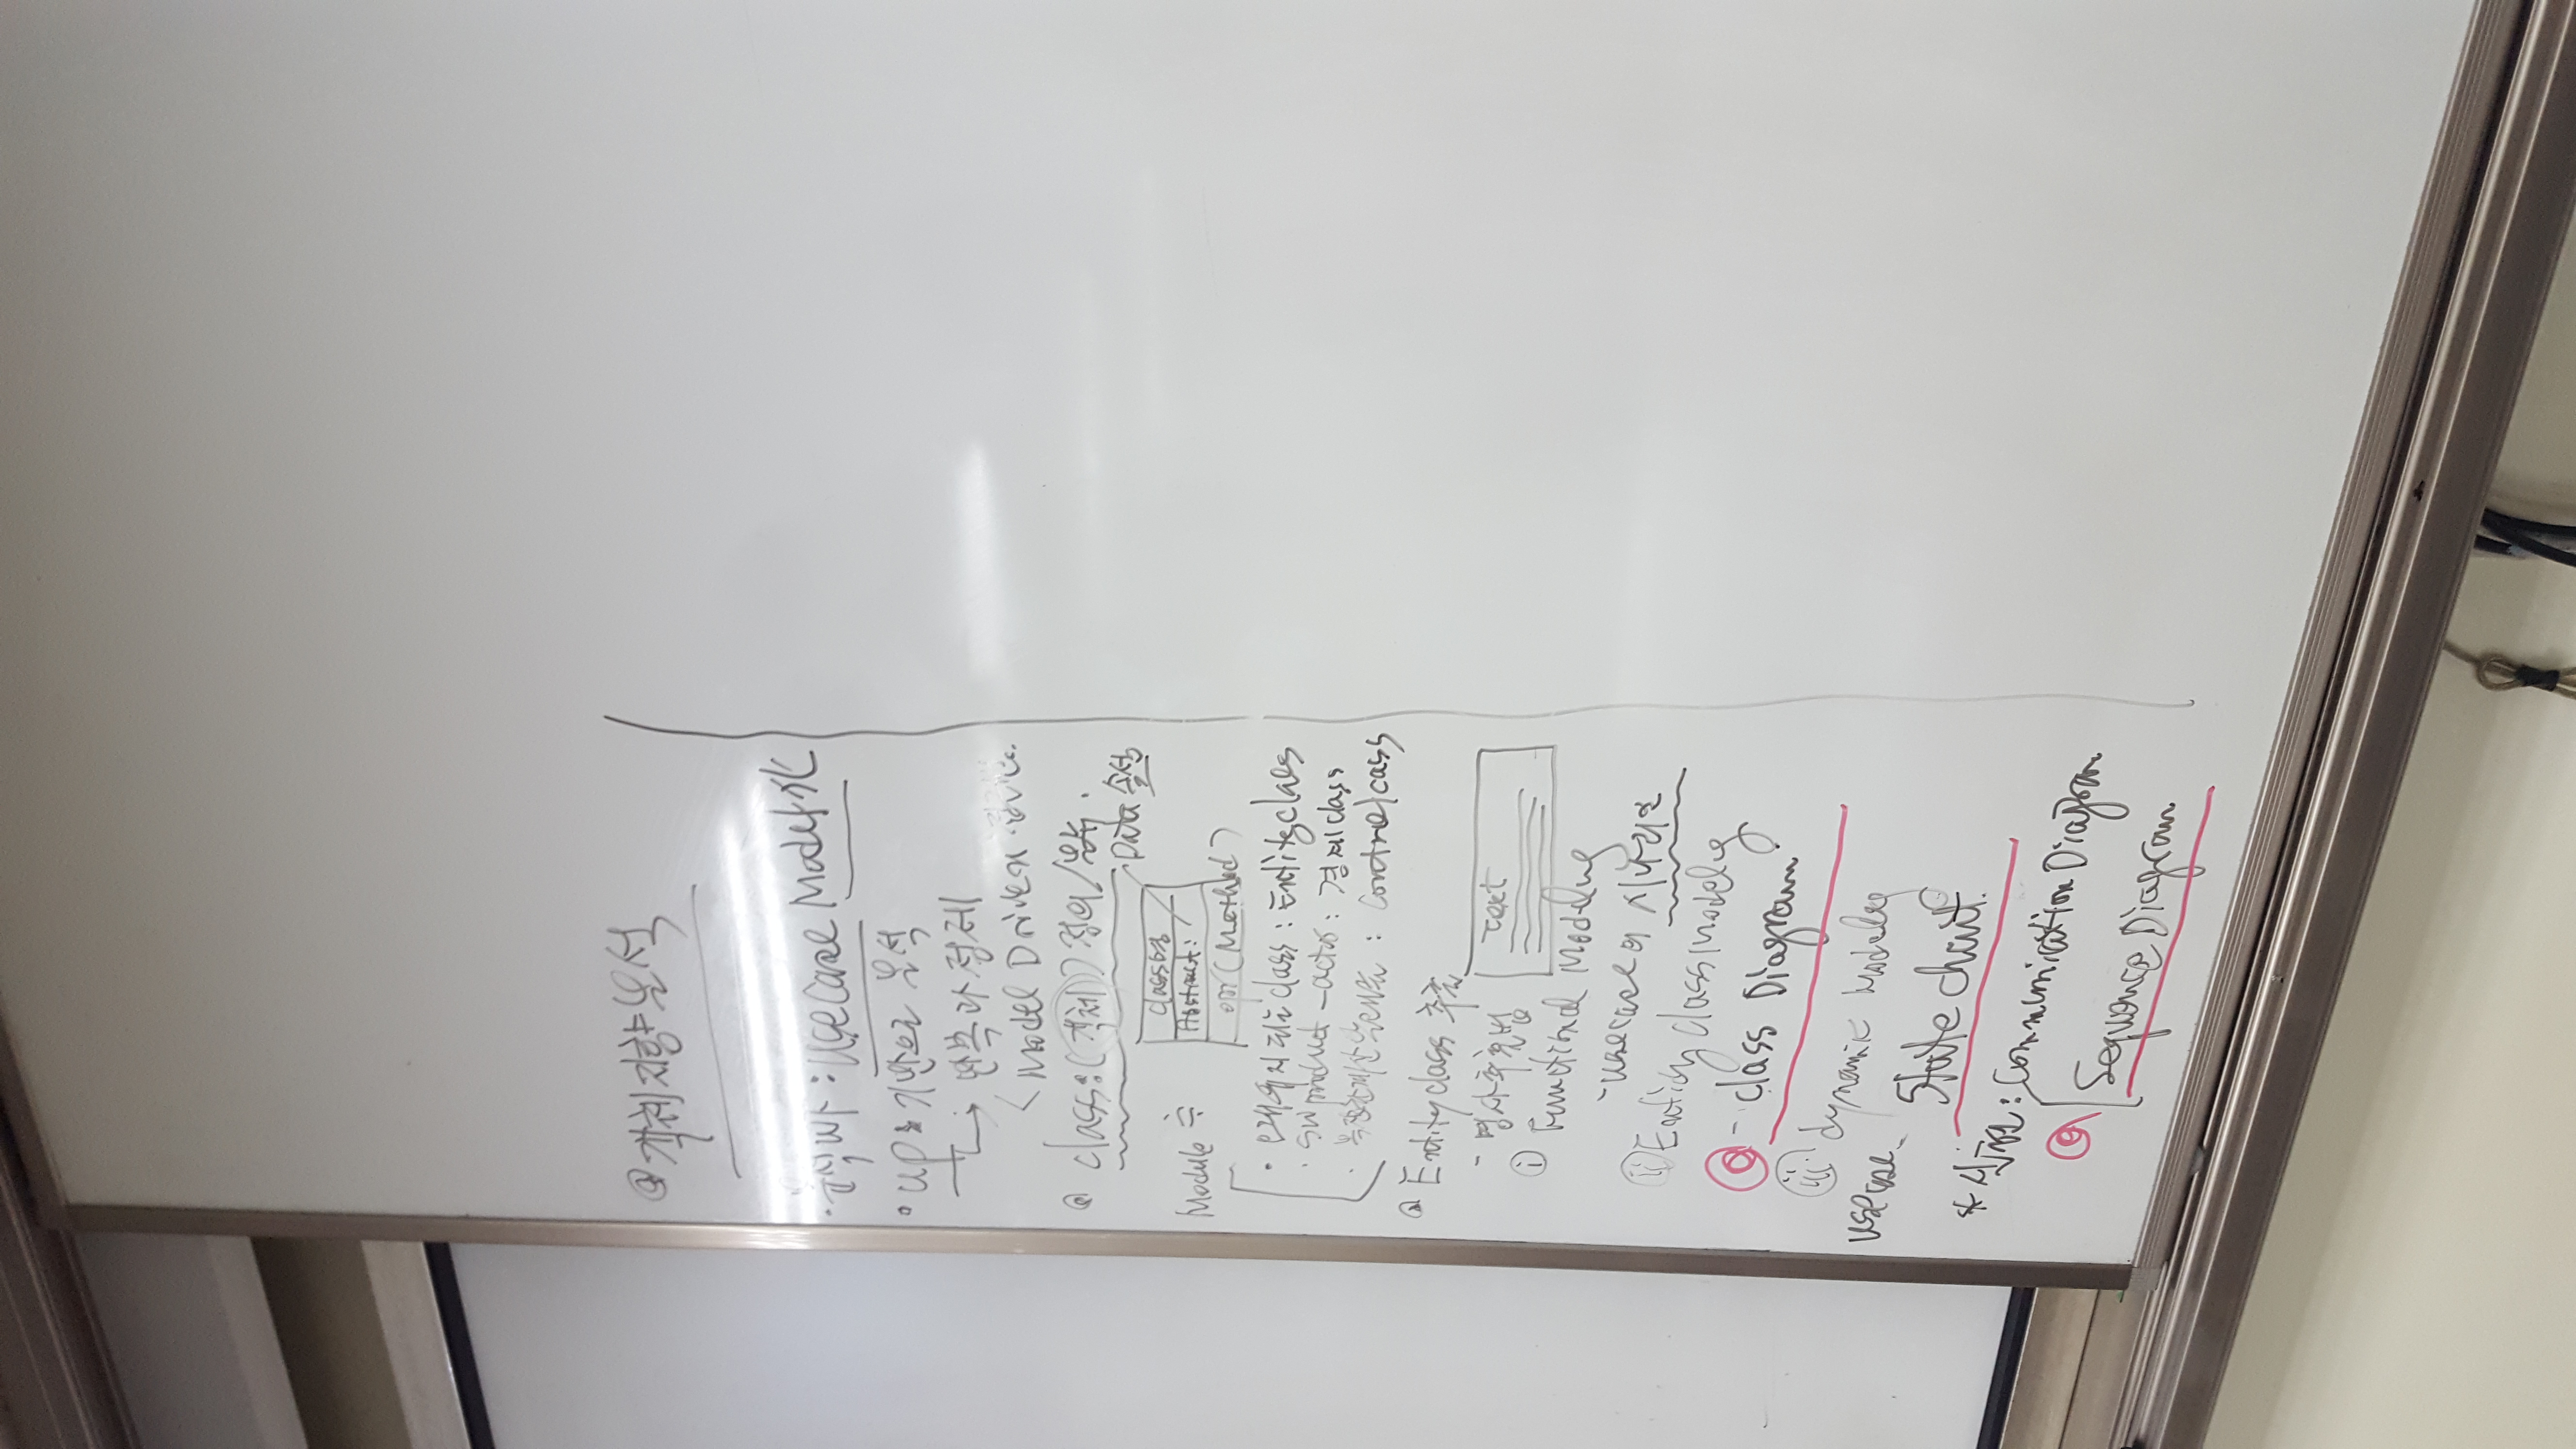 @ 객체지향분석
· 분석 WF : UseCase Model化
· UP를 기반으로 분석
→ 반복과 정제
< Model Driven 접근법.
@ class:(객체) 정의/분류.
Data 속성
class명
Module ≒
Abstract:
opr(Method)
· 오래유지 되는 class : Entityclass
· SW product - actor : 경계class
· 복잡한계산 알고리즘 : Control cass
@ Entityclass 추출
- 명사추출법
Text
ⓘ Functional Modeling
- usecase의 시나리오
ⓘⓘ Entity Class Modeling
@ - class Diagram
ⓘⓘⓘ dynamic Modeling
usecase -
State chart.
* 실현 : Communication Diagram
@ Sequence Diagram